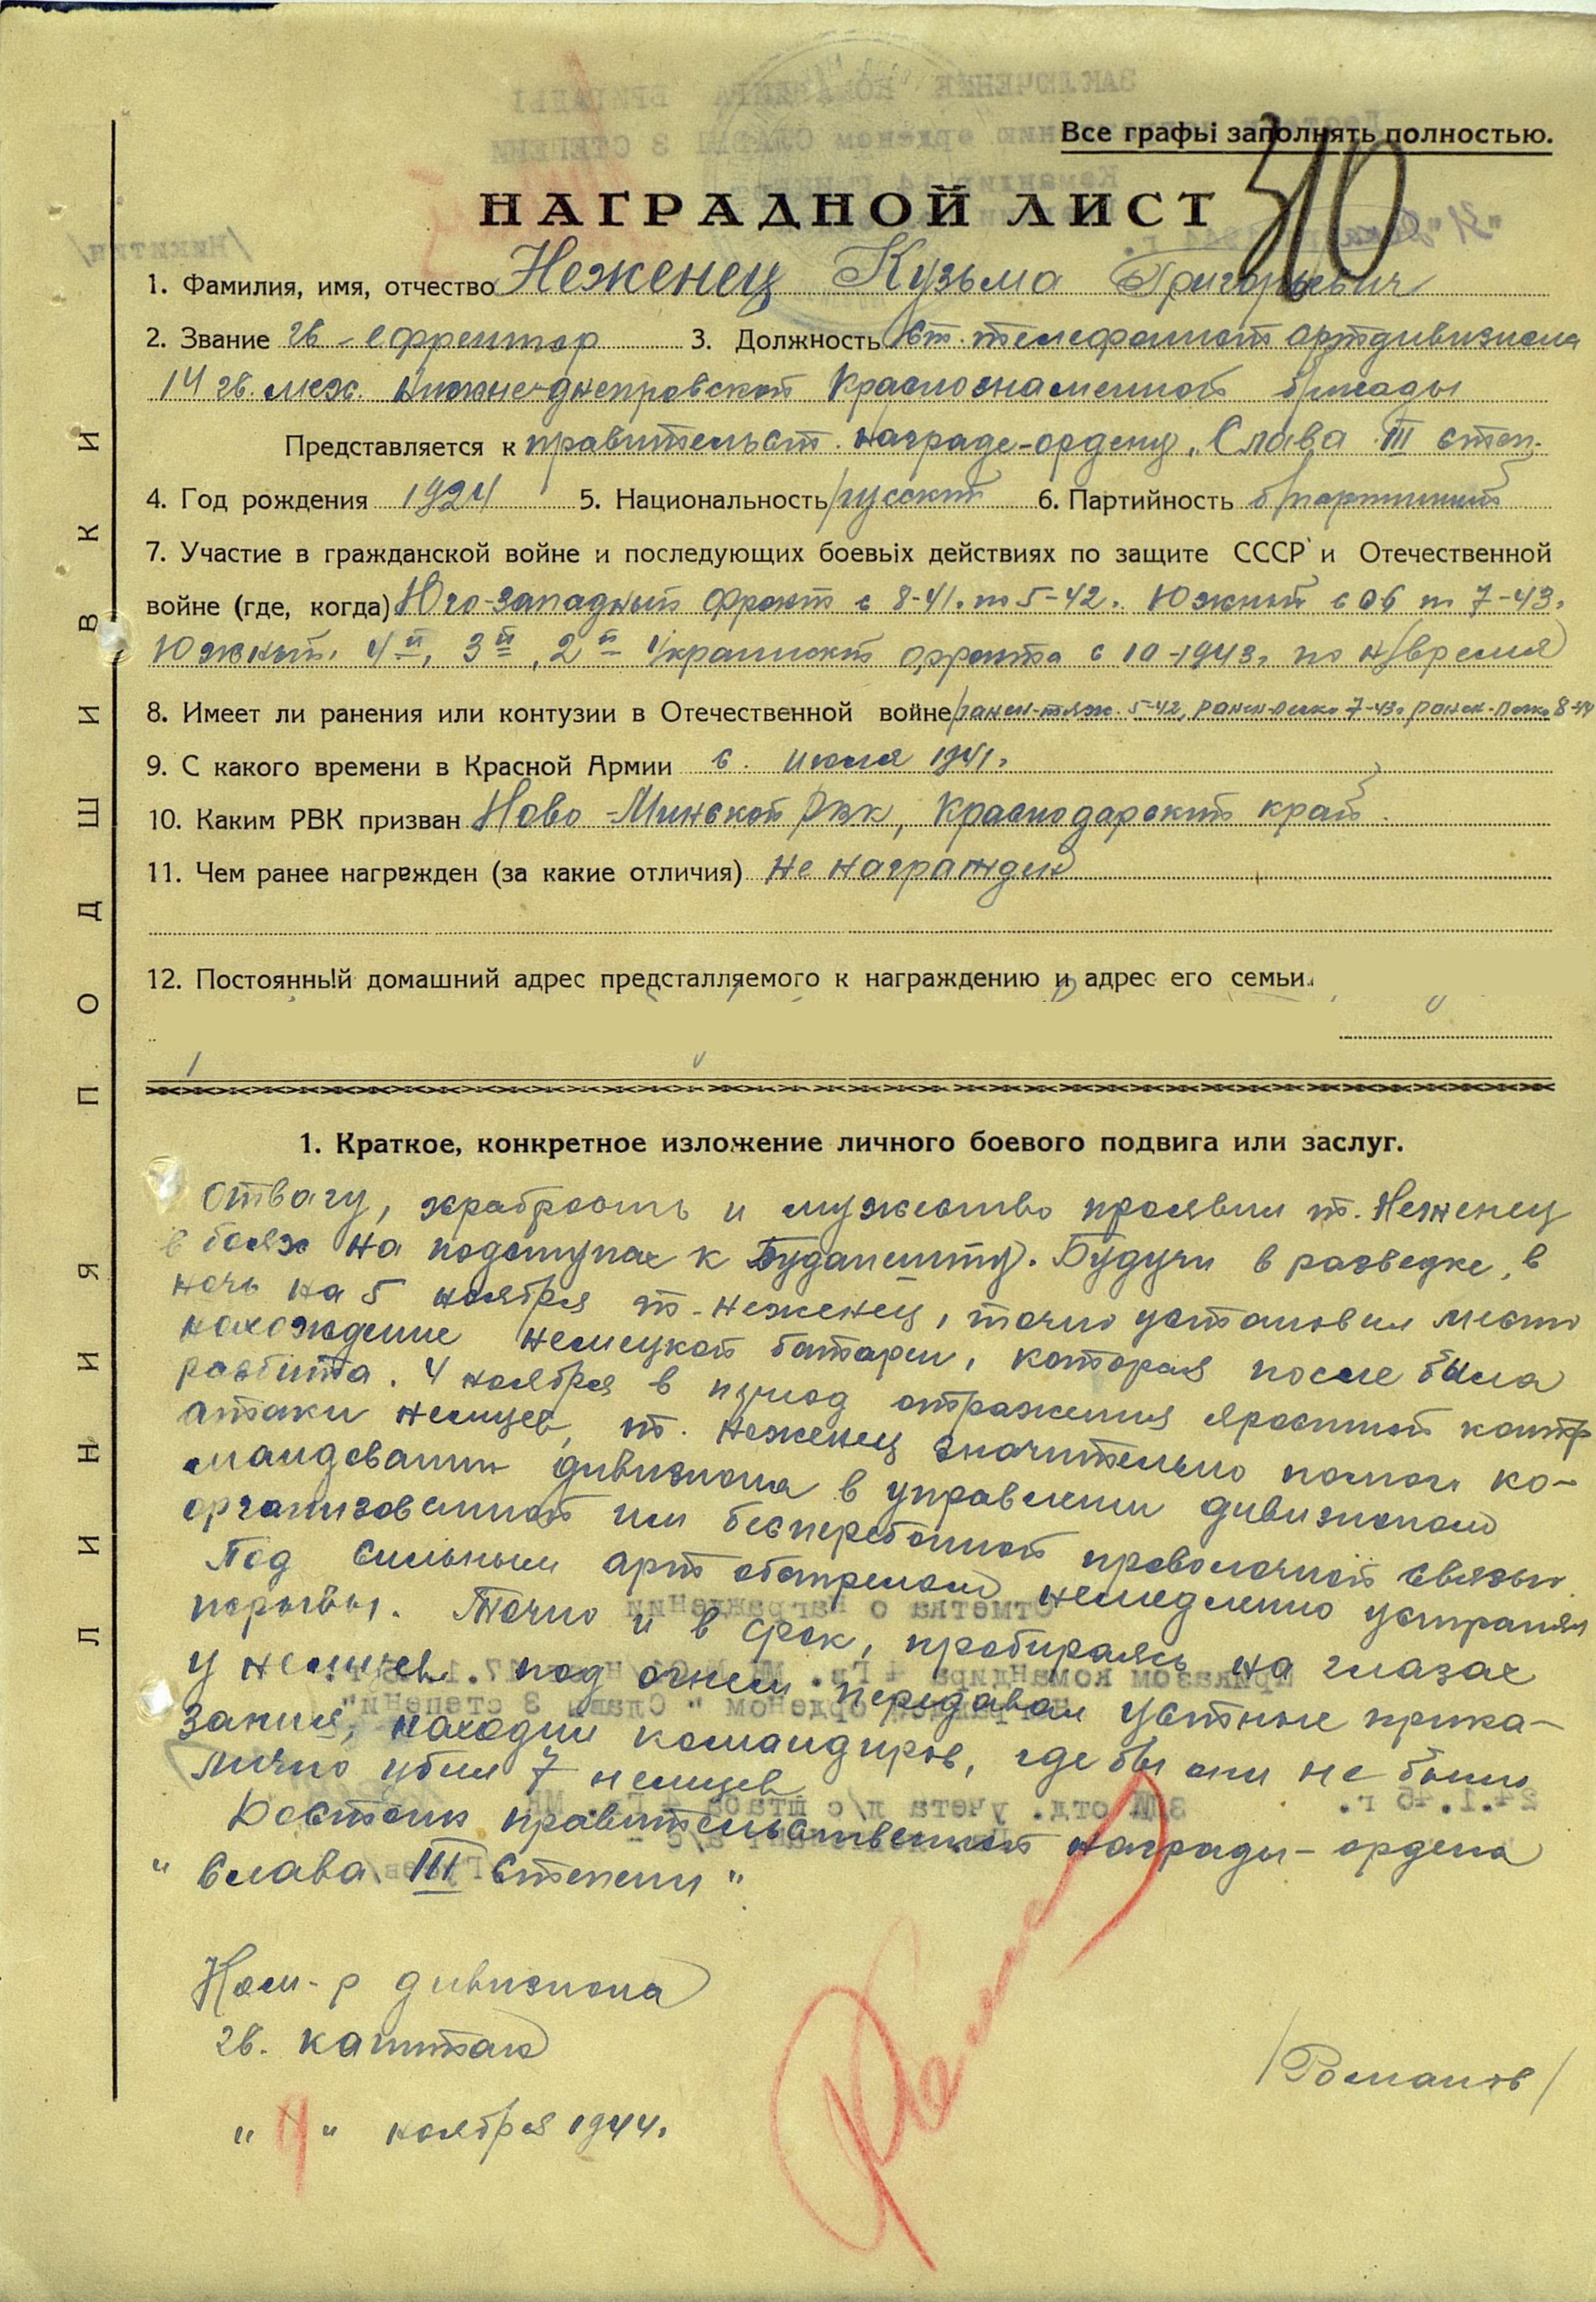 Все графы заполнять полностью.
310
НАГРАДНОЙ ЛИСТ
1. Фамилия, имя, отчество Неженец Кузьма Григорьевич
2. Звание гв-ефрейтор 3. Должность ст. телефонист артдивизиона
14 гв. мех. Нижне-днепровской Краснознаменной бригады
Представляется к правительст. награде-ордену „Слава III степ.
4. Год рождения 1924 5. Национальность русский 6. Партийность б/партийный
7. Участие в гражданской войне и последующих боевых действиях по защите СССР и Отечественной
войне (где, когда) Юго-западный фронт с 8-41. по 5-42. Южный с 06 по 7-43.
Южный, 4й, 3й, 2й Украинский фронта с 10-1943г. по н/время
8. Имеет ли ранения или контузии в Отечественной войне ранен-тяж. 5-42, ранен-легко 7-43г ранен-легко 8-44
9. С какого времени в Красной Армии с. июля 1941г.
10. Каким РВК призван Ново-Минской рвк, Краснодарский край.
11. Чем ранее награжден (за какие отличия) не награжден
12. Постоянный домашний адрес предсталляемого к награждению и адрес его семьи.
1. Краткое, конкретное изложение личного боевого подвига или заслуг.
Отвагу, храбрость и мужество проявил т. Неженец
в боях на подступах к Будапешту. Будучи в разведке, в
ночь на 5 ноября т. Неженец, точно установил место
нахождение немецкой батареи, которая после была
разбита. 4 ноября в период отражения яростной контр
атаки немцев, т. Неженец значительно помог ко-
мандованию дивизиона в управлении дивизионом
организованной им бесперебойной проволочной связью.
Под сильным арт обстрелом немедленно устранял
порывы. Точно и в срок, пробираясь на глазах
у немцев под огнем передавал устные прика-
зания, находил командиров, где бы они не были
Лично убил 7 немцев
Достоин правительственной награды – ордена
"Слава III степени"
Ком-р дивизиона
гв. капитан
/Романов/
"4" ноября 1944г.
ЛИНИЯ ПОДШИВКИ